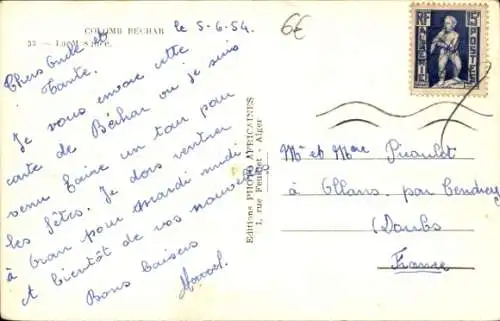 COLOMB BECHAR
le 5-6-54.
6€
Chers Oncle et
Tante.
Je vous envoie cette
carte de Béchar ou je suis
venu faire un tour pour
les fêtes. Je dois rentrer
à Oran pour mardi midi
et bientôt de vos nouvelles
Bons baisers
Marcel.
Editions PHOTO AFRICAINES
1, rue Feuillet - Alger
RF
ALGERIE
POSTES
Mr et Mme Picardot
à Ollans par Cendrey
(Doubs)
France